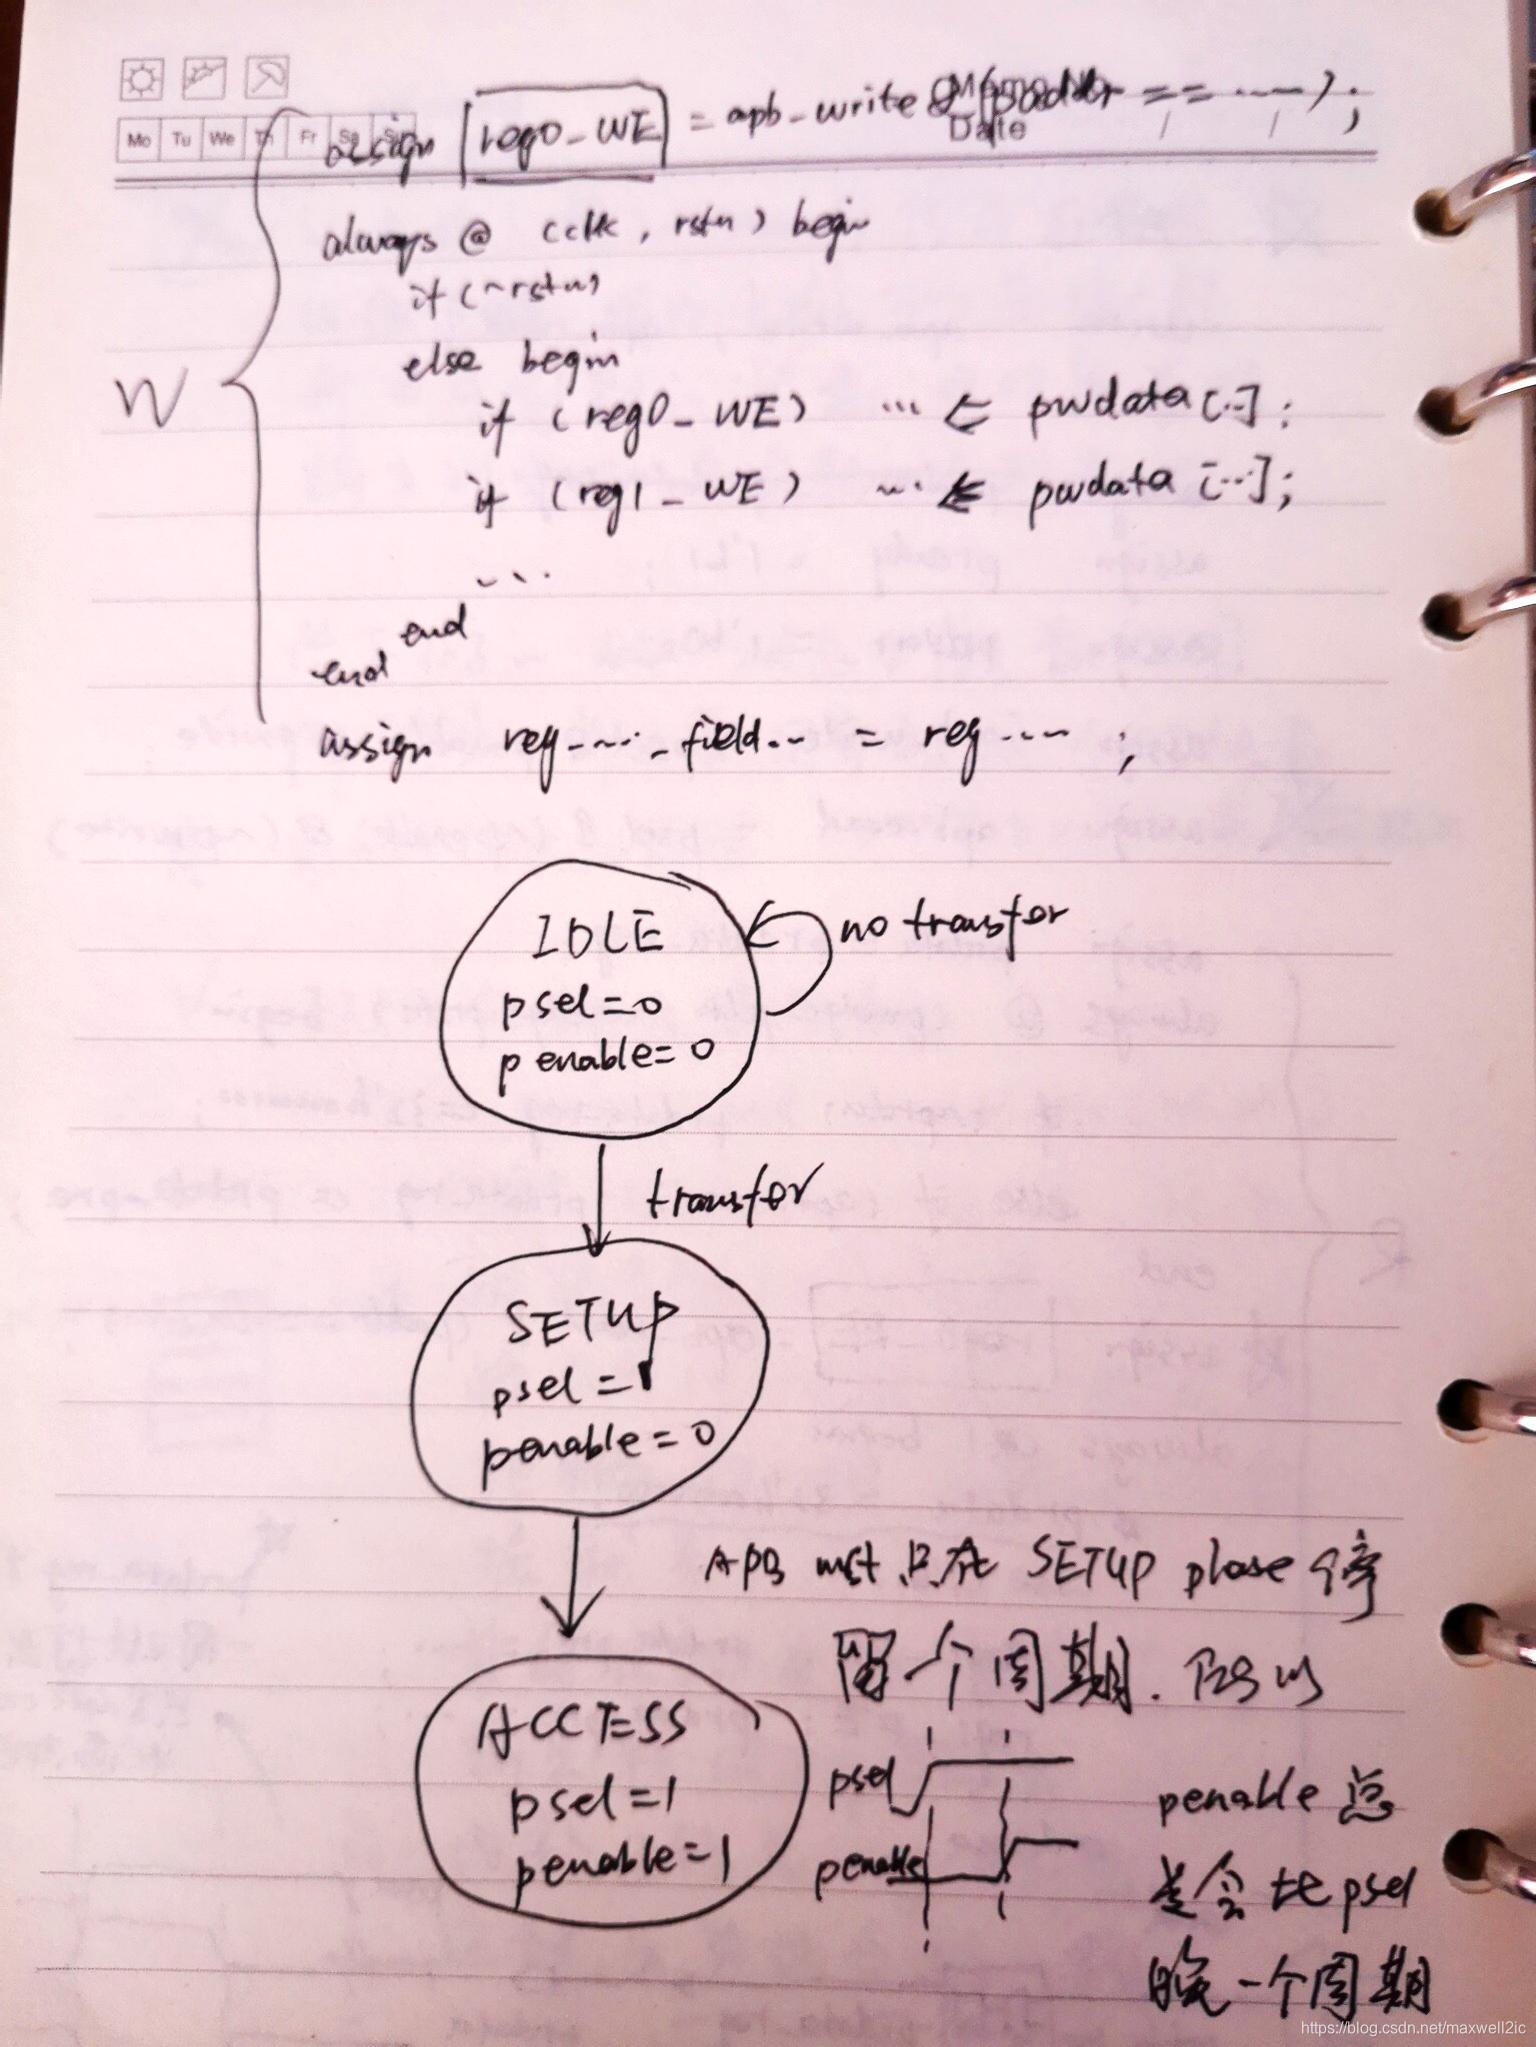 Mo Tu We Th Fr Sa Su
Memo No.
Date / /
assign reg0_WE = apb_write & (paddr == ····);
always @ (clk, rstn) begin
if (~rstn)
else begin
if (reg0_WE) ··· <= pwdata[··];
if (reg1_WE) ··· <= pwdata[···];
···
end
end
W
assign reg····_field·· = reg····;
IDLE
psel=0
penable=0
no transfer
transfer
SETUP
psel=1
penable=0
APB mst 只在 SETUP phase 停
留一个周期. 所以
ACCESS
psel=1
penable=1
psel
penable
penable 总
是会比psel
晚一个周期
https://blog.csdn.net/maxwell2ic